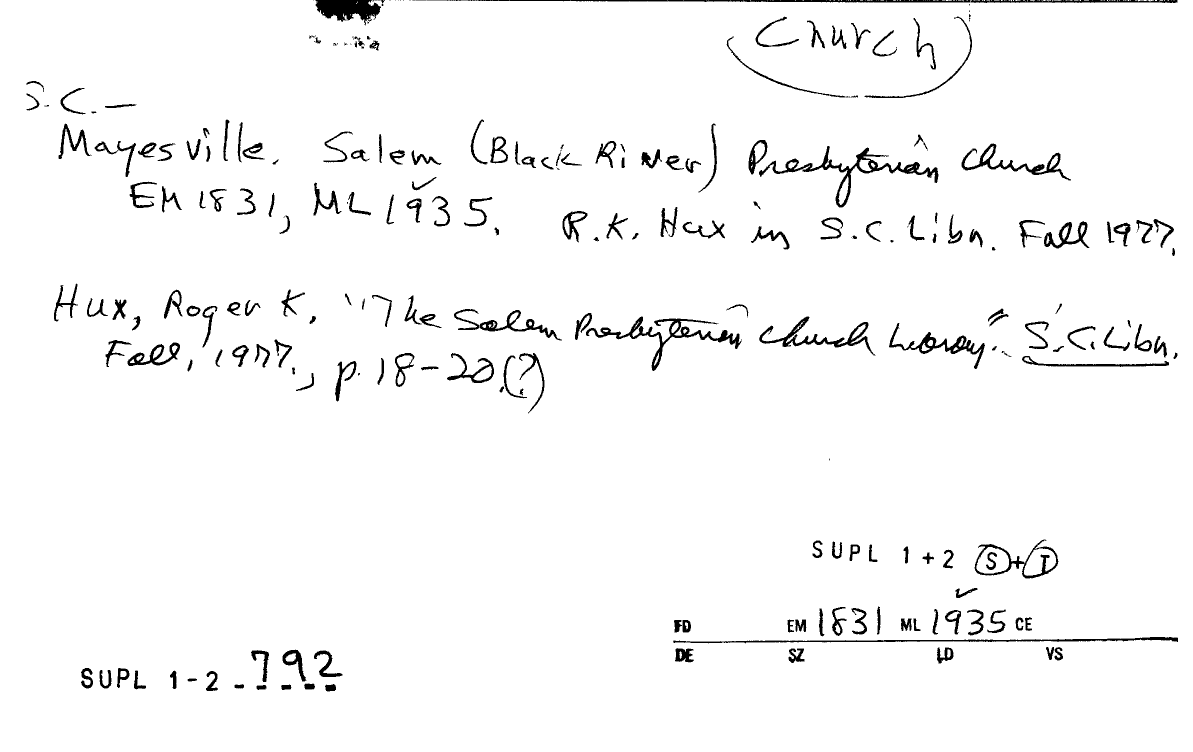 Church
S.C. —
Mayesville. Salem (Black River) Presbyterian Church
EM 1831, ML 1935. R.K. Hux in S.C. Libn. Fall 1977.
Hux, Roger K. "The Salem Presbyterian Church Library." S.C. Libn.
Fall, 1977., p. 18-20.(?)
SUPL 1+2 S+T
FD EM 1831 ML 1935 CE
DE SZ LD VS
SUPL 1-2 792